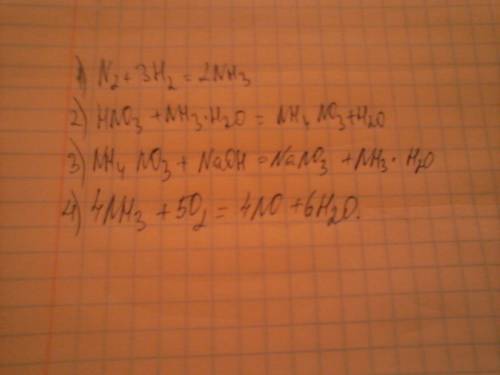 1) N₂ + 3H₂ = 2NH₃
2) HNO₃ + NH₃·H₂O = NH₄NO₃ + H₂O
3) NH₄NO₃ + NaOH = NaNO₃ + NH₃·H₂O
4) 4NH₃ + 5O₂ = 4NO + 6H₂O.